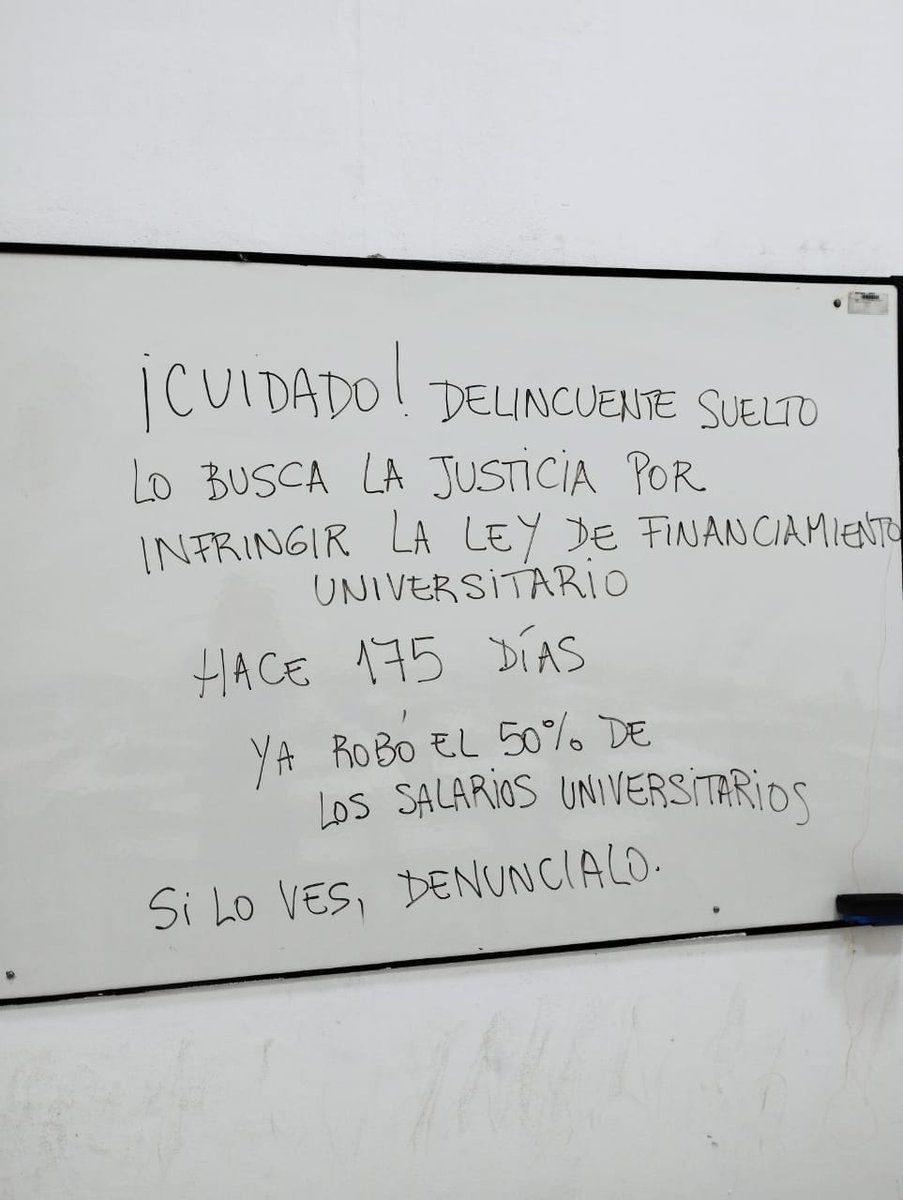 ¡CUIDADO! DELINCUENTE SUELTO
LO BUSCA LA JUSTICIA POR
INFRINGIR LA LEY DE FINANCIAMIENTO
UNIVERSITARIO
HACE 175 DÍAS
YA ROBÓ EL 50% DE
LOS SALARIOS UNIVERSITARIOS
SI LO VES, DENUNCIALO.